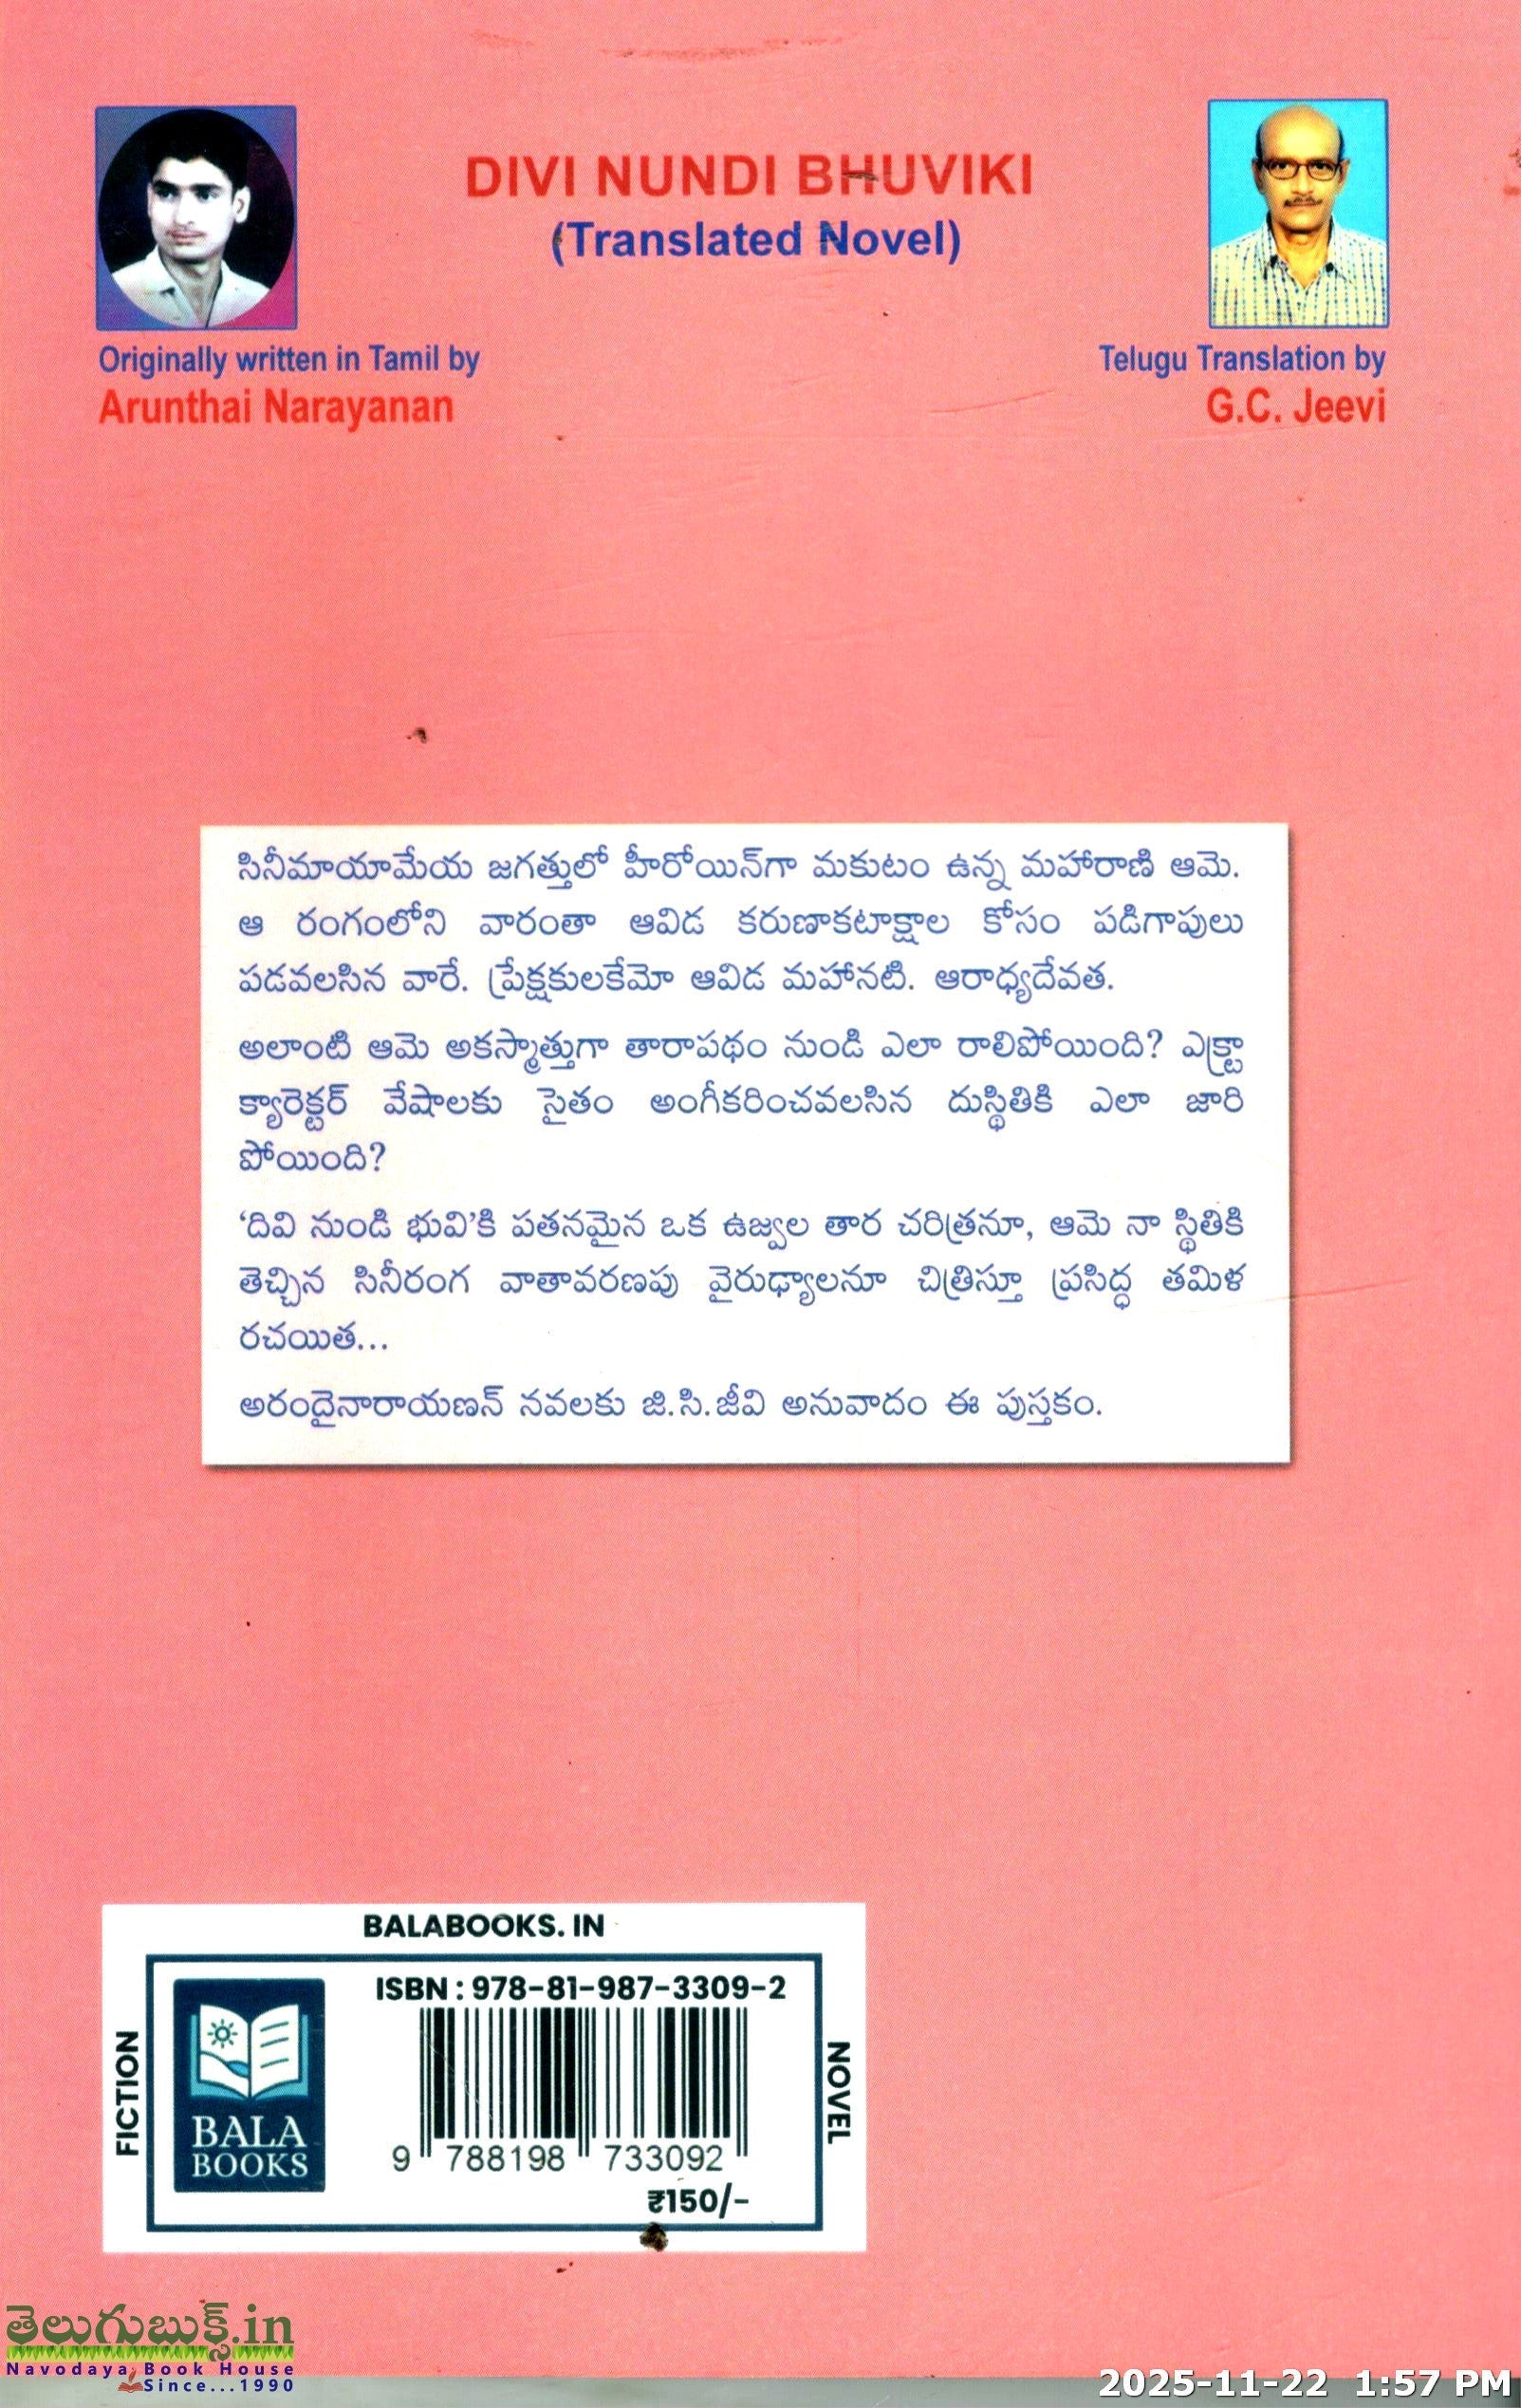 DIVI NUNDI BHUVIKI
(Translated Novel)
Originally written in Tamil by
Arunthai Narayanan
Telugu Translation by
G.C. Jeevi
సినీమాయామేయ జగత్తులో హీరోయిన్‌గా మకుటం ఉన్న మహారాణి ఆమె.
ఆ రంగంలోని వారంతా ఆవిడ కరుణాకటాక్షాల కోసం పడిగాపులు
పడవలసిన వారే. ప్రేక్షకులకేమో ఆవిడ మహానటి. ఆరాధ్యదేవత.
అలాంటి ఆమె అకస్మాత్తుగా తారాపథం నుండి ఎలా రాలిపోయింది? ఎక్స్ట్రా
క్యారెక్టర్ వేషాలకు సైతం అంగీకరించవలసిన దుస్థితికి ఎలా జారి
పోయింది?
‘దివి నుండి భువి’కి పతనమైన ఒక ఉజ్వల తార చరిత్రనూ, ఆమె నా స్థితికి
తెచ్చిన సినీరంగ వాతావరణపు వైరుఢ్యాలనూ చిత్రిస్తూ ప్రసిద్ధ తమిళ
రచయిత...
అరందైనారాయణన్ నవలకు జి.సి.జీవి అనువాదం ఈ పుస్తకం.
BALABOOKS. IN
FICTION
BALA
BOOKS
ISBN : 978-81-987-3309-2
9 788198 733092
₹150/-
NOVEL
తెలుగుబుక్స్.in
Navodaya Book House
Since...1990
2025-11-22 1:57 PM